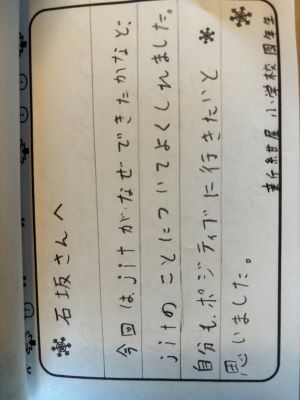 石坂さんへ
今回はjitがなぜできたかなど、
jitのことについてよくしれました。
自分も、ポジティブに行きたいと
思いました。
新紺屋小学校四年生